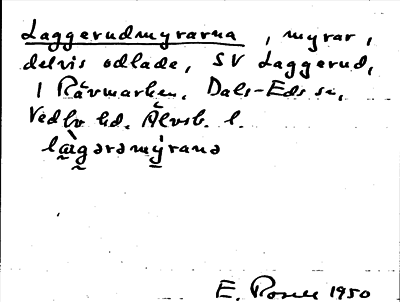 Laggerudmyrarna , myrar,
delvis odlade, SV Laggerud,
i Rävmarken. Dals-Eds sn,
Vedbo hd. Älvsb. l.
làgərəmy̍ranə
E. 1950